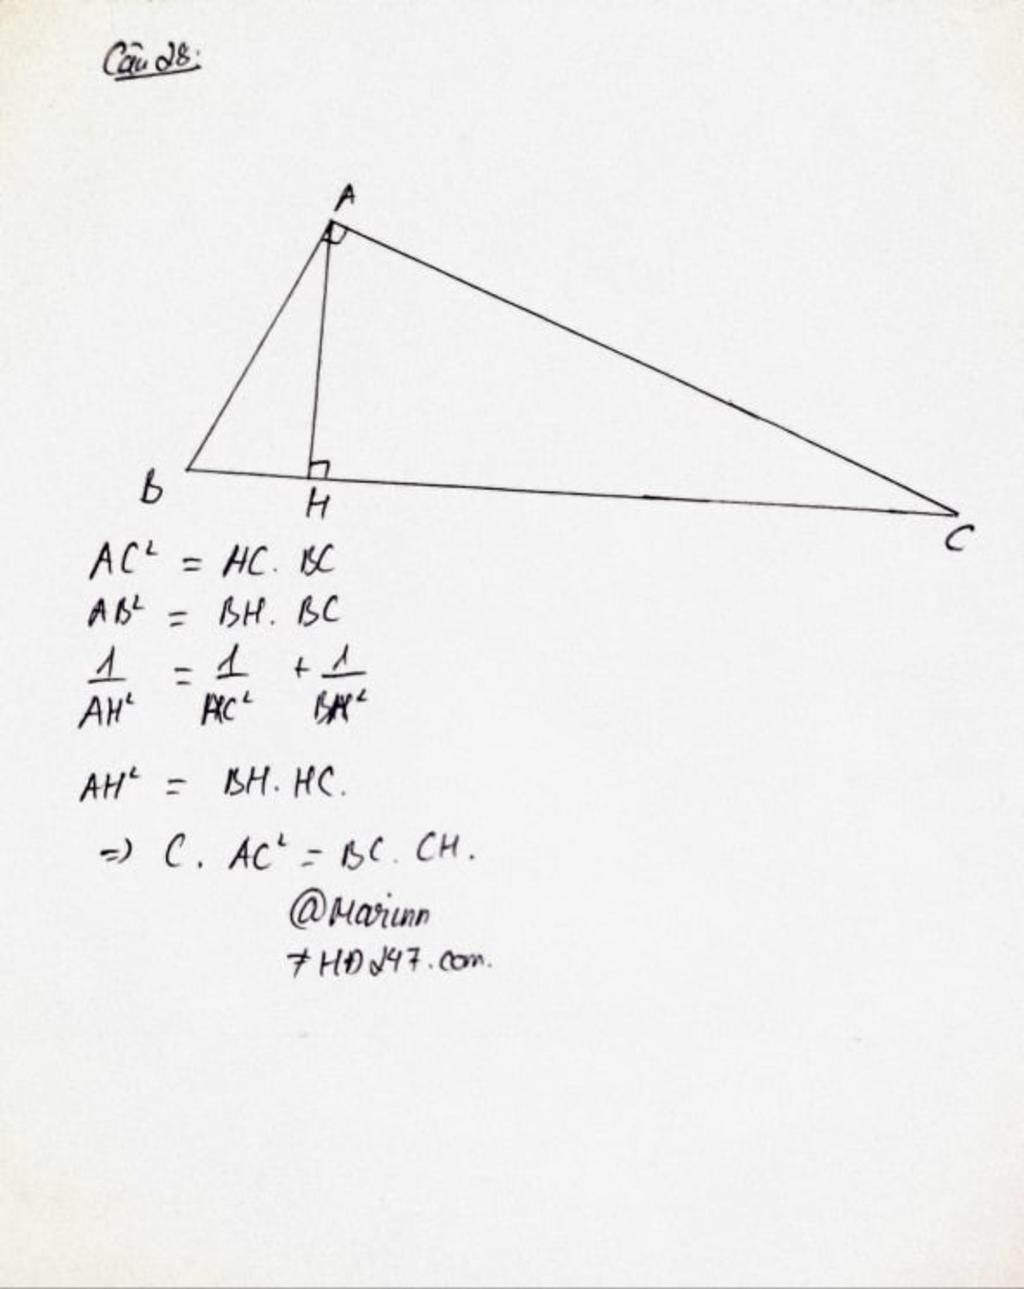 Câu 28:
A
B
H
C
AC² = HC. BC
AB² = BH. BC
1/AH² = 1/AC² + 1/BA²
AH² = BH. HC.
=> C. AC² = BC. CH.
@Marinn
≠HĐ247.com.